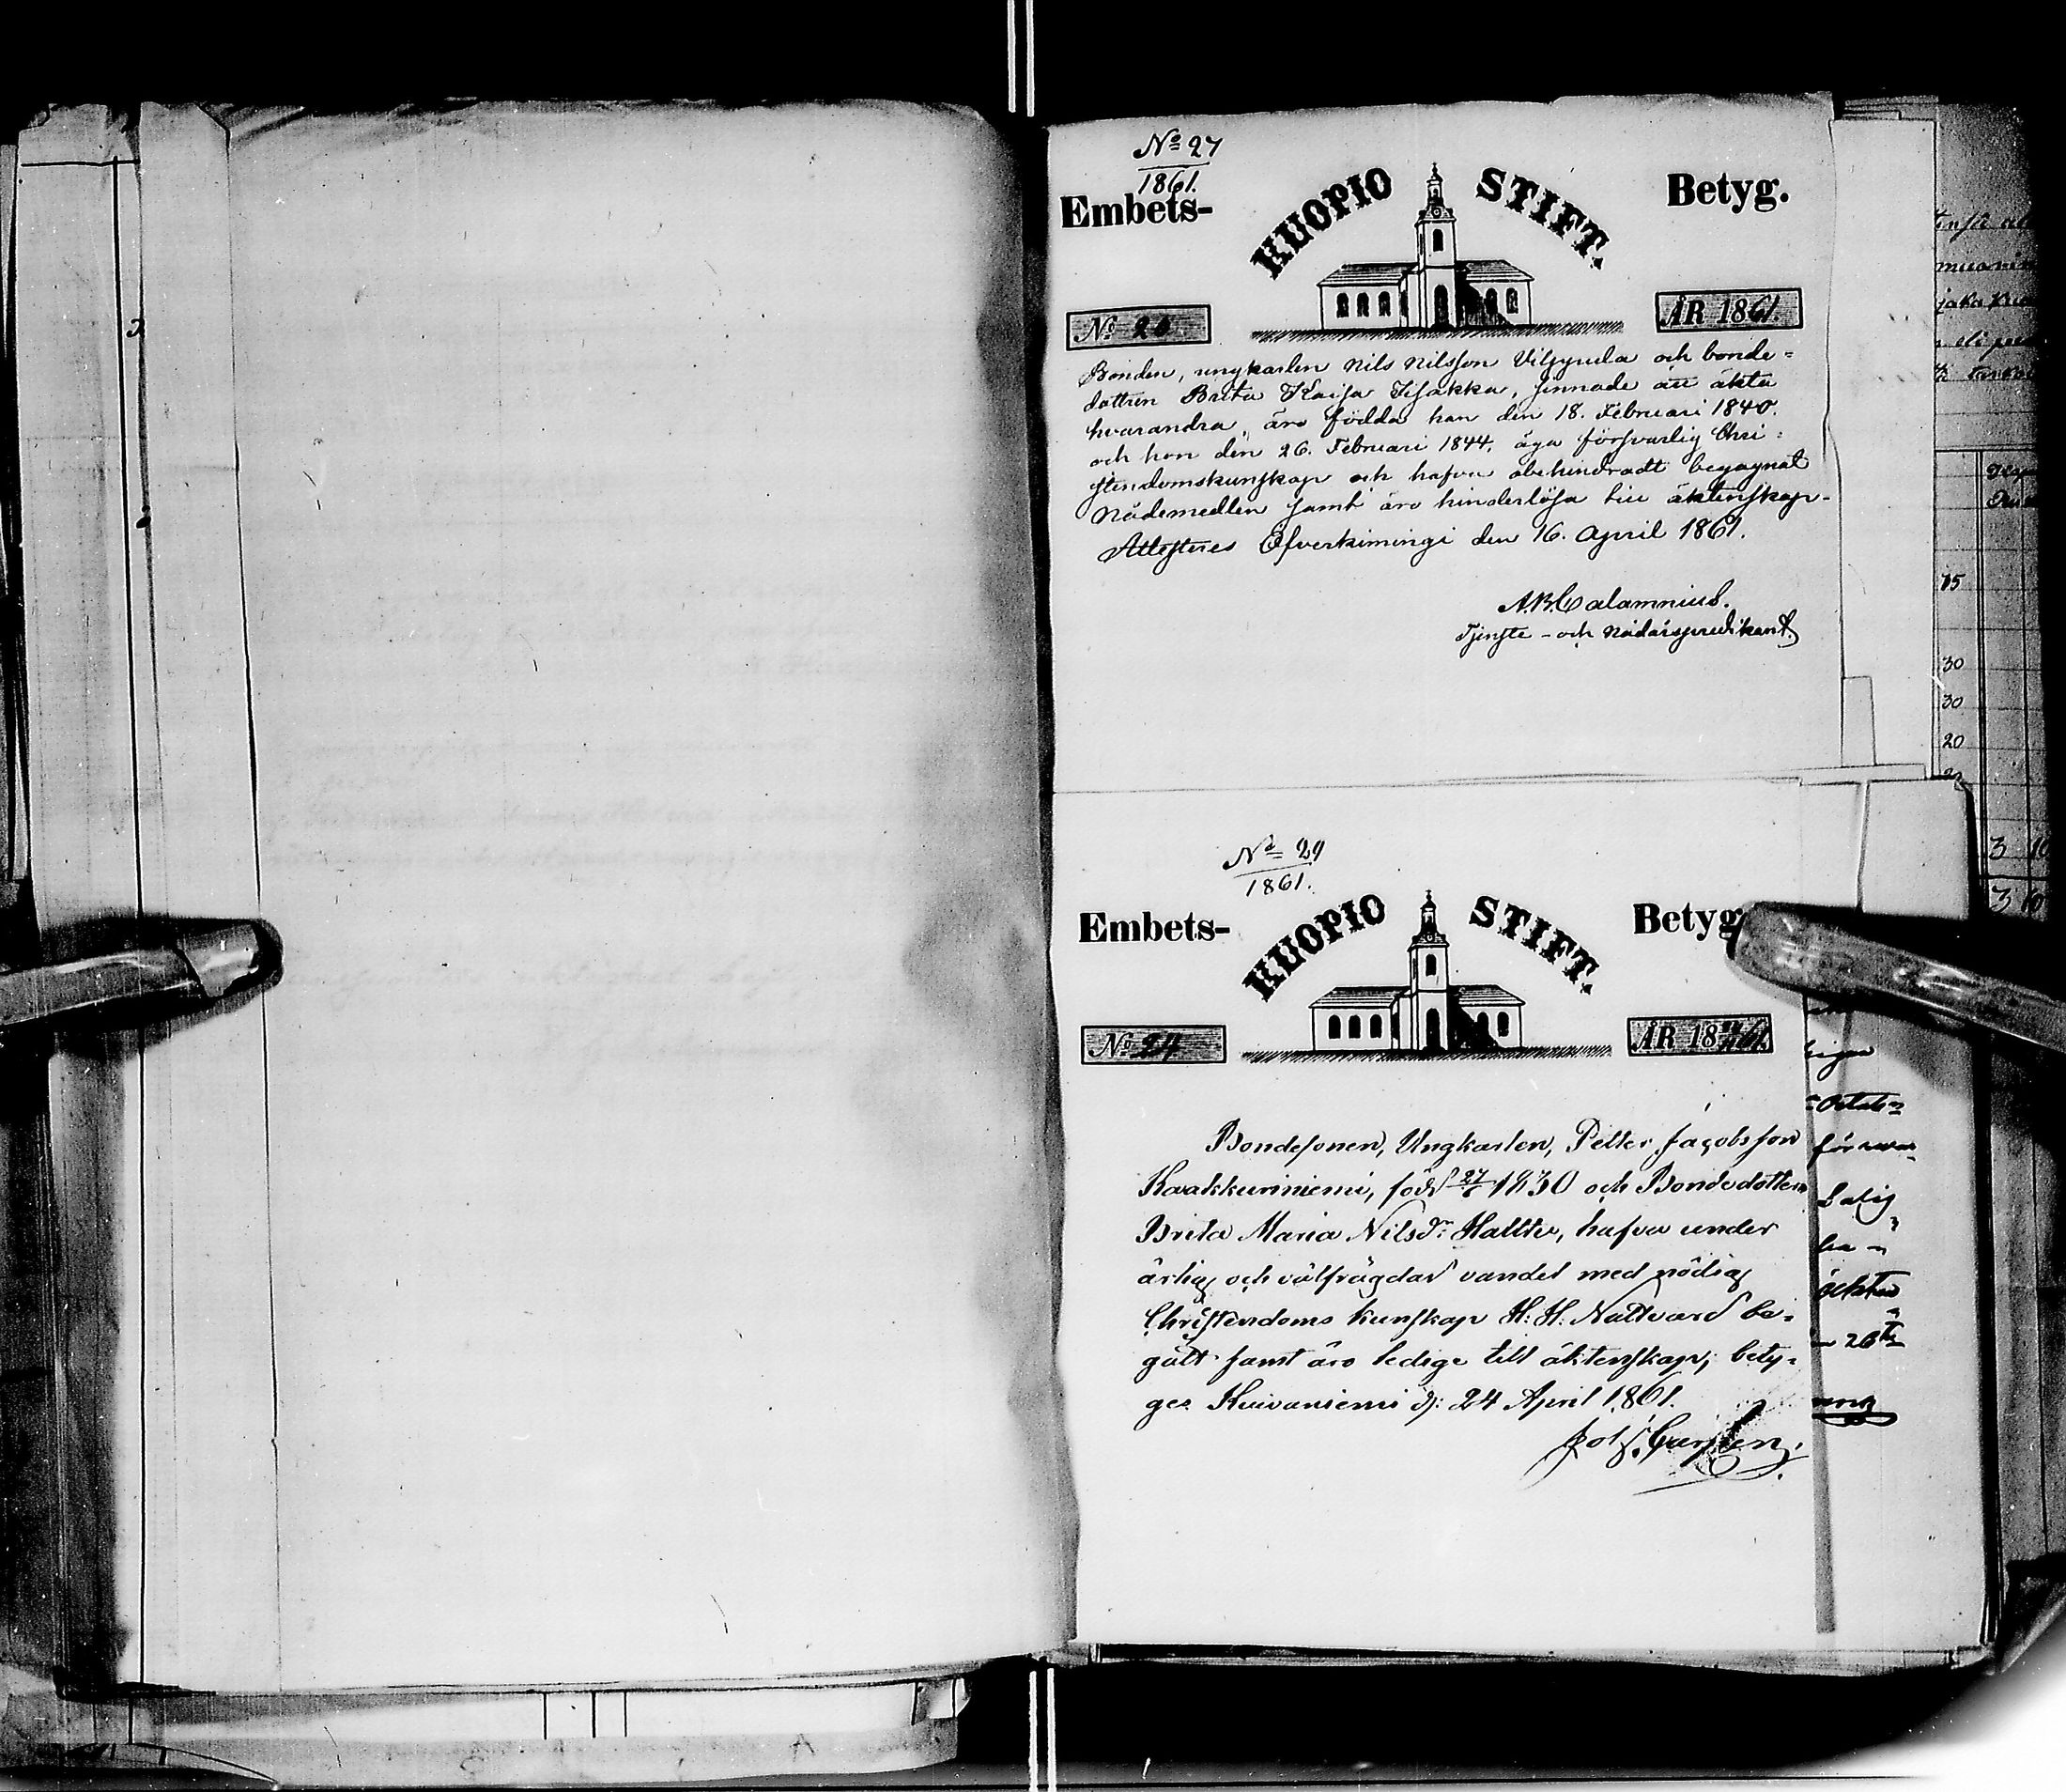 No 27
1861.
Embets- KUOPIO STIFT. Betyg.
No 20 ÅR 1861
Bonden, ungkarlen Nils Nilsson och bonde=
dottren Brita Kaisa, sinnade att äkta
hvarandra, äro födda han den 18. Februari 1840.
och hon den 26. Februari 1844, äga försvarlig Chri=
stendomskunskap och hafva obehindradt begagnat
Nådemedlen samt äro hinderlösa till äktenskap.
Attesteras Öfverkimingi den 16. April 1861.
A.B. Calamnius.
Tjenste- och Nådårspredikant.
No 29
1861.
Embets- KUOPIO STIFT. Betyg
No 24 ÅR 18
Bondesonen, Ungkarlen, Petter Jacobsson
Kaakkuriniemi, född 1830 och Bondedottern
Brita Maria Nilsdr Haltta, hafva under
ärlig och välfrägdad vandel med nödig
Christendoms kunskap H: H: Nattvard be=
gått samt äro ledige till äktenskap; bety=
ges Kuivaniemi d: 24 April 1861.
15
30
30
20
3 10
3 10